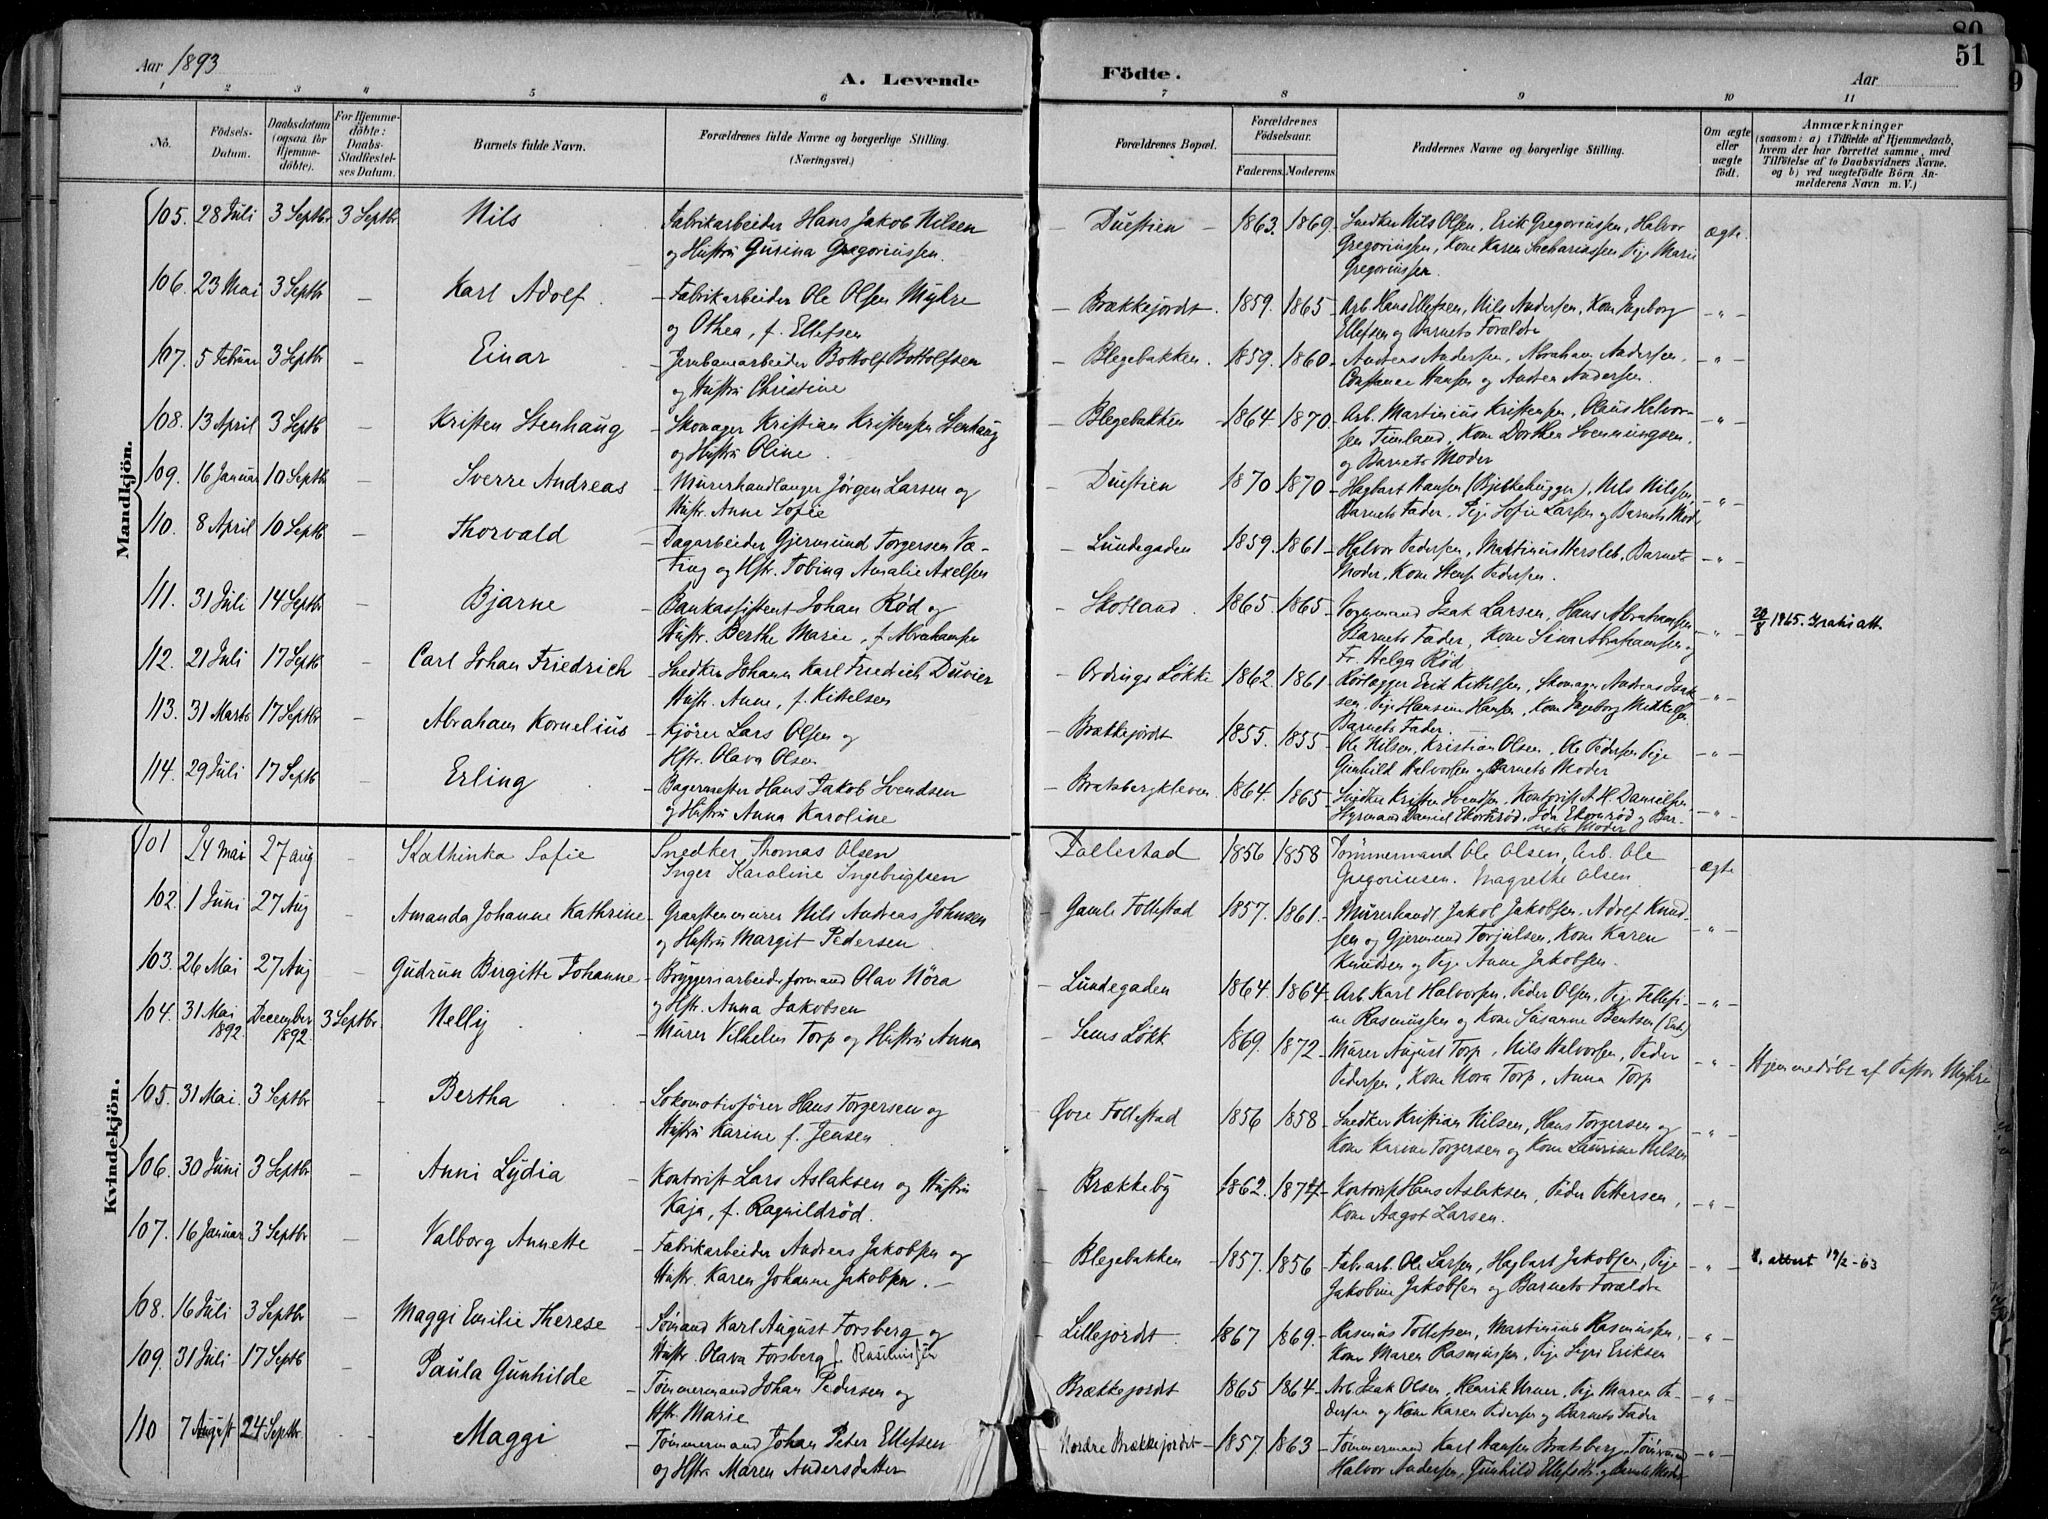 80
51
Aar 1893
A. Levende
Födte.
Aar
1 2 3 4 5 6 7 8 9 10 11
No.
Födsels-Datum.
Daabsdatum (ogsaa for Hjemmedöbte).
For Hjemmedöbte: Daabs-Stadfæstelses Datum.
Barnets fulde Navn.
Forældrenes fulde Navne og borgerlige Stilling.
(Næringsvei.)
Forældrenes Bopæl.
Forældrenes Födselsaar.
Faderens. Moderens.
Faddernes Navne og borgerlige Stilling.
Om ægte eller uægte födt.
Anmærkninger
(saasom: a) i Tilfælde af Hjemmedaab, hvem der har forrettet samme, med Tilföielse af to Daabsvidners Navne. og b) ved uægtefödte Börn Anmelderens Navn m. V.)
Mandkjön.
105. 28 Juli 3 Septbr 3 Septbr Nils Fabrikarbeider Hans Jakob Nilsen Duestien 1863. 1869. Snedker Nils Olsen, Erik Gregoriussen, Halvor ægte.
og Hustru Gurina Gregoriussen. Gregoriussen, Kone Karen Sachariassen Pige Marie
Gregoriussen.
106. 23 Mai 3 Septbr Karl Adolf Fabrikarbeider Ole Olsen Myhre Brækkejordt. 1859. 1865 Arb. Hans Ellefsen, Nils Andersen, Kone Ingeborg
og Othea, f. Ellefsen Ellefsen og Barnets Forældre
107. 5 Februar 3 Septbr Einar Jernbanearbeider Bottolf Bottolfsen Blegebakken. 1859. 1860 Andreas Andersen, Abraham Andersen,
og Hustru Christine Constance Hansen og Andrea Andersen.
108. 13 April 3 Septb Kristen Stenhaug Skomager Kristian Kristensen Stenhaug Blegebakken 1864 1870 Arb. Martinius Kristensen, Olaus Halvor-
og Hustru Oline. sen Finland, Kone Dorthea Svenningsen,
og Barnets Moder
109. 16 Januar 10 Septbr Sverre Andreas Murerhandlanger Jørgen Larsen og Duestien 1870 1870 Hagbart Hansen (Bjelkehugger), Nils Nilssen
Hustr. Anne Sofie Barnets Fader, Pige Sofie Larsen og Barnets Moder
110. 8 April 10 Septb Thorvald Dagarbeider Gjermund Torgersen Væ- Lundegaden 1859. 1861 Halvor Pedersen, Martinius Hersleb, Barnets
ting og Hstr. Tobina Amalie Axelsen Moder, Kone Pedersen.
111. 31 Juli 14 Septbr Bjarne Bankassistent Johan Rød og Skotland 1865. 1865 Isak Larsen, Hans Abrahamsen 20/8 1965. Gratis att.
Hustr. Berthe Marie, f. Abrahamsen Barnets Fader, Kone Sina Abrahamsen og
Fr. Helga Rød
112. 21 Juli 17 Septb Carl Johan Friedrich Snedker Johann Karl Friedrich Duvier Ordings Løkke 1862. 1861 Erik Kittelsen, Skomager Andreas Isak-
Hustr. Anne, f. Kittelsen sen, Pige Hansine Hansen, Kone Ingeborg Mikkelsen
Barnets Fader
113. 31 Marts 17 Septbr Abraham Kornelius Kjører Lars Olsen og Brækkejordt 1855. 1855 Ole Nilsen, Kristian Olsen, Ole Pedersen Pige
Hstr. Olava Olsen Gunhild Halvorsen og Barnets Moder
114. 29 Juli 17 Septb Erling Bagermester Hans Jakob Svendsen Bratsbergkleven 1864. 1865 Snedker Kristen Svendsen, Kontorist A. H. Danielsen
og Hustru Anna Karoline Styrmand Daniel Ekornrød, Ekornrød og Bar-
nets Moder
Kvindekjön.
101 24 mai 27 aug Kathinka Sofie Snedker Thomas Olsen Follestad 1856 1858 Tömmermand Ole Olsen, Arb. Ole ægte
Inger Karoline Ingebrigtsen Gregoriusen. Magrethe Olsen
102. 1 Juni 27 Aug Amanda Johanne Kathrine Graastensmurer Nils Andreas Johnsen Gamle Follestad 1857. 1861. Murerhandl. Jakob Jakobsen, Adolf Knud-
og Hustru Margit Pedersen sen og Gjermund Torjulsen, Kone Karen
Knudsen og Pige Anne Jakobsen.
103. 26 Mai 27 Aug Gudrun Birgitte Johanne Bryggeriarbeidsformand Olav Nöra Lundegaden 1864 1864 Arb Karl Halvorsen, Peder Olsen, Pige Tellefi-
og Hstr. Anna Jakobsen ne Rasmussen og Kone Susanne Bentsen (Enke)
104. 31 Mai 1892. December 1892. 3 Septbr. Nelly Murer Vilhelm Torp og Hustru Anna Sems Løkk 1869. 1872 Murer August Torp, Nils Halvorsen, Peder Hjemmedøbt af Pastor Myhre
Pedersen, Kone Nora Torp, Anna Torp
105. 31 Mai. 3 Septbr Bertha Lokomotivfører Hans Torgersen og Øvre Follestad 1856 1858 Snedker Kristian Nilsen, Hans Torgersen og
Hustru Karine f. Jensen Kone Karine Torgersen og Kone Laurine Nilsen
106. 30 Juni 3 Septbr Anni Lydia Kontorist Lars Aslaksen og Hustru Brækkeby 1862. 1874 Kontorist Hans Aslaksen, Peder Pettersen,
Kaja, f. Ragnildrød. Kone Aagot Larsen.
107. 16 Januar 3 Septbr Valborg Annette Fabrikarbeider Andreas Jakobsen og Blegebakken 1857. 1856 Fabarb. Ole Larsen, Hagbart Jakobsen, Pige attest 19/2-63
Hustr. Karen Johanne Jakobsen. Jakobine Jakobsen og Barnets Forældre
108. 16 Juli 3 Septbr Maggi Emilie Therese Sømand Karl August Forsberg og Lillejordt. 1867 1869. Rasmus Tollefsen, Martinius Rasmussen,
Hustr. Olava Forsberg f. Rasmussen Kone Maren Rasmussen, Pige Siri Eriksen
109. 31 Juli 17 Septb Paula Gunhilde Tømmermand Johan Pedersen og Brækkejordt 1865 1864 Arb. Isak Olsen, Henrik Urner, Pige Maren Pe-
Hstr. Marie dersen og Kone Karen Pedersen og Barnets Fader
110 7 August 24 Septbr Maggi Tømmermand Johan Peter Ellefsen Nordre Brækkejordet 1857. 1863 Tømmermand Karl Hansen Bratsberg, Tömmermand
og Hstru Maren Andersdatter Halvor Andersen, Gunhild Ellefsdtr. og Barnets Moder